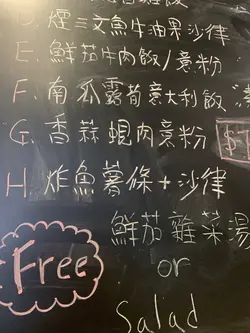 D. 煙三文魚牛油果沙律
E. 鮮茄牛肉飯/意粉
F. 南瓜露荀意大利飯
G. 香蒜蜆肉意粉
H. 炸魚薯條+沙律
Free
鮮茄雜菜湯
or
Salad